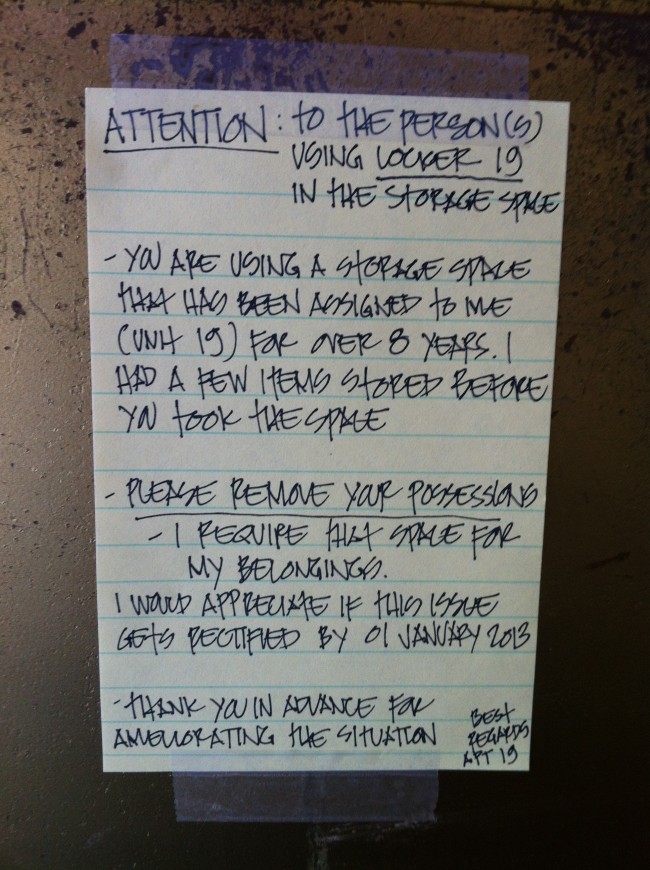 ATTENTION: TO THE PERSON(S)
USING LOCKER 19
IN THE STORAGE SPACE
- YOU ARE USING A STORAGE SPACE
THAT HAS BEEN ASSIGNED TO ME
(UNIT 19) FOR OVER 8 YEARS. I
HAD A FEW ITEMS STORED BEFORE
YOU TOOK THE SPACE
- PLEASE REMOVE YOUR POSSESSIONS
- I REQUIRE THAT SPACE FOR
MY BELONGINGS.
I WOULD APPRECIATE IF THIS ISSUE
GETS RECTIFIED BY 01 JANUARY 2013
- THANK YOU IN ADVANCE FOR
AMELIORATING THE SITUATION
BEST
REGARDS
APT 19